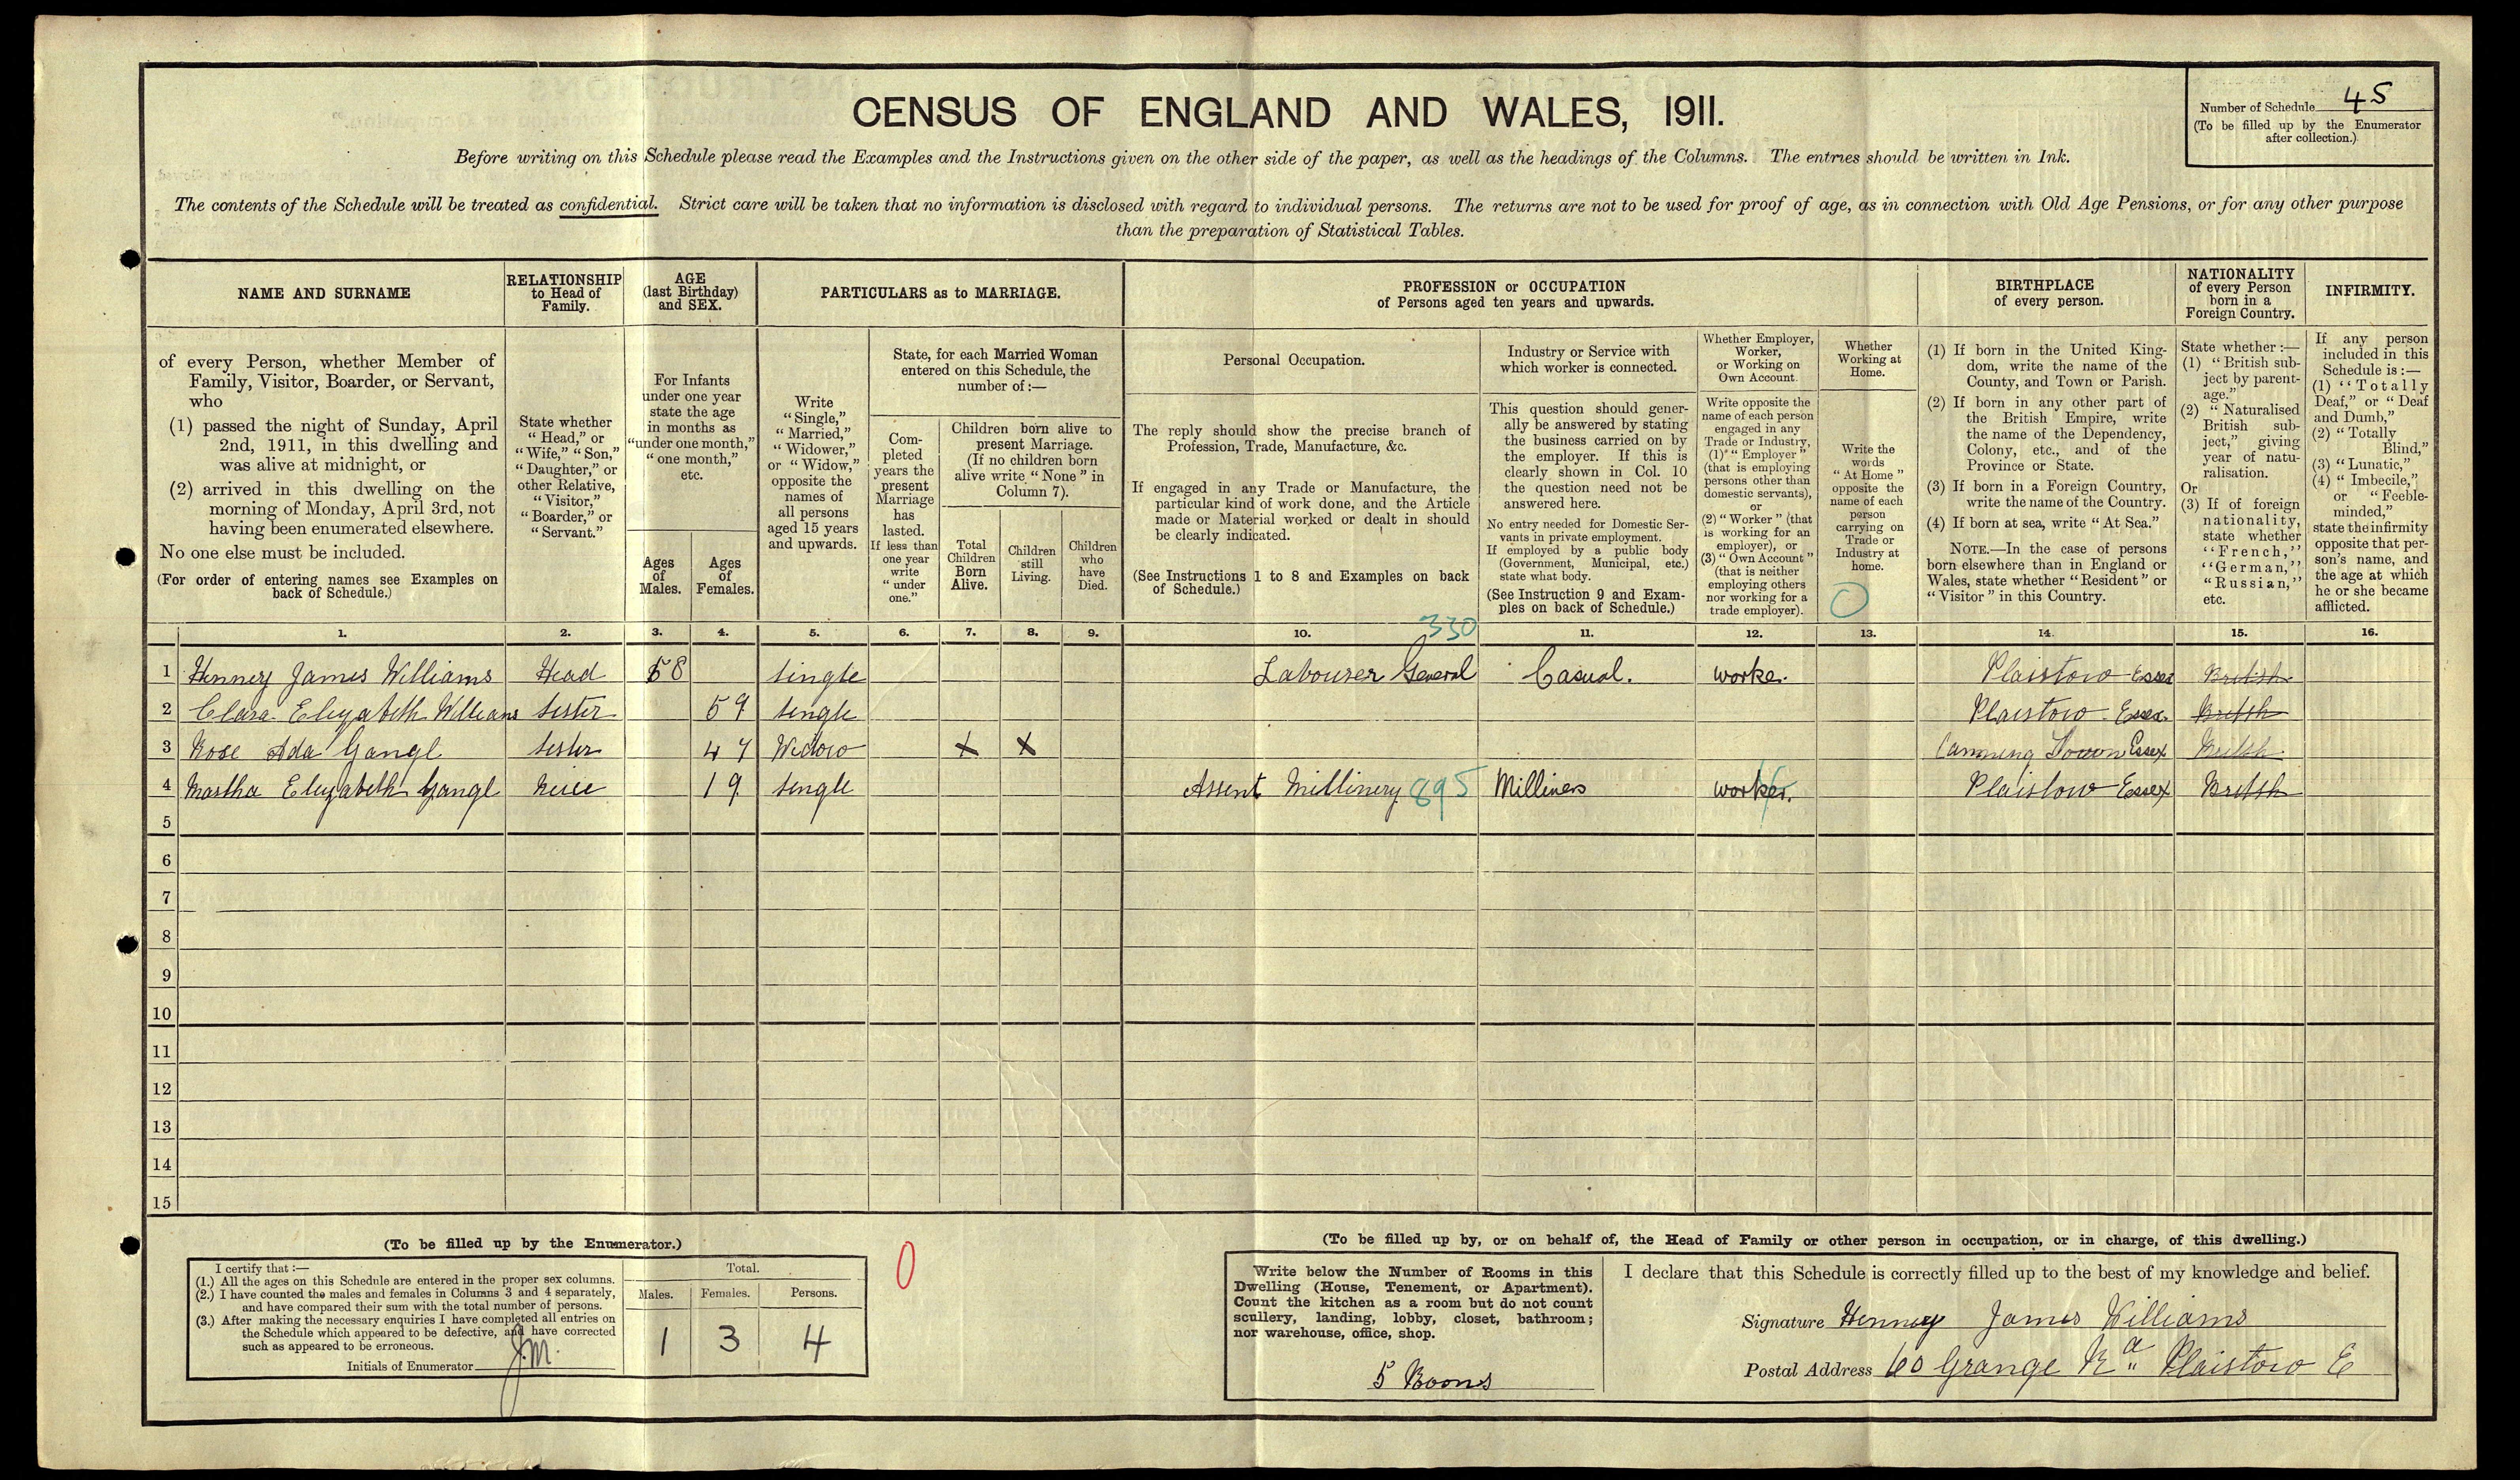 Number of Schedule 45
(To be filled up by the Enumerator
after collection.)
CENSUS OF ENGLAND AND WALES, 1911.
Before writing on this Schedule please read the Examples and the Instructions given on the other side of the paper, as well as the headings of the Columns. The entries should be written in Ink.
The contents of the Schedule will be treated as confidential. Strict care will be taken that no information is disclosed with regard to individual persons. The returns are not to be used for proof of age, as in connection with Old Age Pensions, or for any other purpose
than the preparation of Statistical Tables.
NAME AND SURNAME
of every Person, whether Member of
Family, Visitor, Boarder, or Servant,
who
(1) passed the night of Sunday, April
2nd, 1911, in this dwelling and
was alive at midnight, or
(2) arrived in this dwelling on the
morning of Monday, April 3rd, not
having been enumerated elsewhere.
No one else must be included.
(For order of entering names see Examples on
back of Schedule.)
RELATIONSHIP
to Head of
Family.
State whether
"Head," or
"Wife," "Son,"
"Daughter," or
other Relative,
"Visitor,"
"Boarder," or
"Servant."
AGE
(last Birthday)
and SEX.
For Infants
under one year
state the age
in months as
"under one month,"
"one month,"
etc.
Ages
of
Males.
Ages
of
Females.
PARTICULARS as to MARRIAGE.
Write
"Single,"
"Married,"
"Widower,"
or "Widow,"
opposite the
names of
all persons
aged 15 years
and upwards.
State, for each Married Woman
entered on this Schedule, the
number of :—
Com-
pleted
years the
present
Marriage
has
lasted.
If less than
one year
write
"under
one."
Children born alive to
present Marriage.
(If no children born
alive write "None" in
Column 7).
Total
Children
Born
Alive.
Children
still
Living.
Children
who
have
Died.
PROFESSION or OCCUPATION
of Persons aged ten years and upwards.
Personal Occupation.
The reply should show the precise branch of
Profession, Trade, Manufacture, &c.
If engaged in any Trade or Manufacture, the
particular kind of work done, and the Article
made or Material worked or dealt in should
be clearly indicated.
(See Instructions 1 to 8 and Examples on back
of Schedule.)
Industry or Service with
which worker is connected.
This question should gener-
ally be answered by stating
the business carried on by
the employer. If this is
clearly shown in Col. 10
the question need not be
answered here.
No entry needed for Domestic Ser-
vants in private employment.
If employed by a public body
(Government, Municipal, etc.)
state what body.
(See Instruction 9 and Exam-
ples on back of Schedule.)
Whether Employer,
Worker,
or Working on
Own Account.
Write opposite the
name of each person
engaged in any
Trade or Industry,
(1) "Employer"
(that is employing
persons other than
domestic servants),
or
(2) "Worker" (that
is working for an
employer), or
(3) "Own Account"
(that is neither
employing others
nor working for a
trade employer).
Whether
Working at
Home.
Write the
words
"At Home"
opposite the
name of each
person
carrying on
Trade or
Industry at
home.
BIRTHPLACE
of every person.
(1) If born in the United King-
dom, write the name of the
County, and Town or Parish.
(2) If born in any other part of
the British Empire, write
the name of the Dependency,
Colony, etc., and of the
Province or State.
(3) If born in a Foreign Country,
write the name of the Country.
(4) If born at sea, write "At Sea."
NOTE.—In the case of persons
born elsewhere than in England or
Wales, state whether "Resident" or
"Visitor" in this Country.
NATIONALITY
of every Person
born in a
Foreign Country.
State whether :—
(1) "British sub-
ject by parent-
age."
(2) "Naturalised
British sub-
ject," giving
year of natu-
ralisation.
Or
(3) If of foreign
nationality,
state whether
"French,"
"German,"
"Russian,"
etc.
INFIRMITY.
If any person
included in this
Schedule is :—
(1) "Totally
Deaf," or "Deaf
and Dumb,"
(2) "Totally
Blind,"
(3) "Lunatic,"
(4) "Imbecile,"
or "Feeble-
minded,"
state the infirmity
opposite that per-
son's name, and
the age at which
he or she became
afflicted.
1. 2. 3. 4. 5. 6. 7. 8. 9. 10. 330 11. 12. 13. 14. 15. 16.
1 Henney James Williams Head 58 single Labourer General Casual. worker. Plaistow Essex British
2 Clara Elizabeth Williams Sister 59 single Plaistow Essex British
3 Rose Ada Gangl Sister 47 Widow X X Canning Town Essex British
4 Martha Elizabeth Gangl Neice 19 single Assent Millinery 895 Milliners worker. Plaistow Essex British
5
6
7
8
9
10
11
12
13
14
15
(To be filled up by the Enumerator.)
I certify that :—
(1.) All the ages on this Schedule are entered in the proper sex columns.
(2.) I have counted the males and females in Columns 3 and 4 separately,
and have compared their sum with the total number of persons.
(3.) After making the necessary enquiries I have completed all entries on
the Schedule which appeared to be defective, and have corrected
such as appeared to be erroneous.
Initials of Enumerator J.M.
Total.
Males. Females. Persons.
1 3 4
0
(To be filled up by, or on behalf of, the Head of Family or other person in occupation, or in charge, of this dwelling.)
Write below the Number of Rooms in this
Dwelling (House, Tenement, or Apartment).
Count the kitchen as a room but do not count
scullery, landing, lobby, closet, bathroom;
nor warehouse, office, shop.
5 Rooms
I declare that this Schedule is correctly filled up to the best of my knowledge and belief.
Signature Henney James Williams
Postal Address 60 Grange Rd Plaistow E